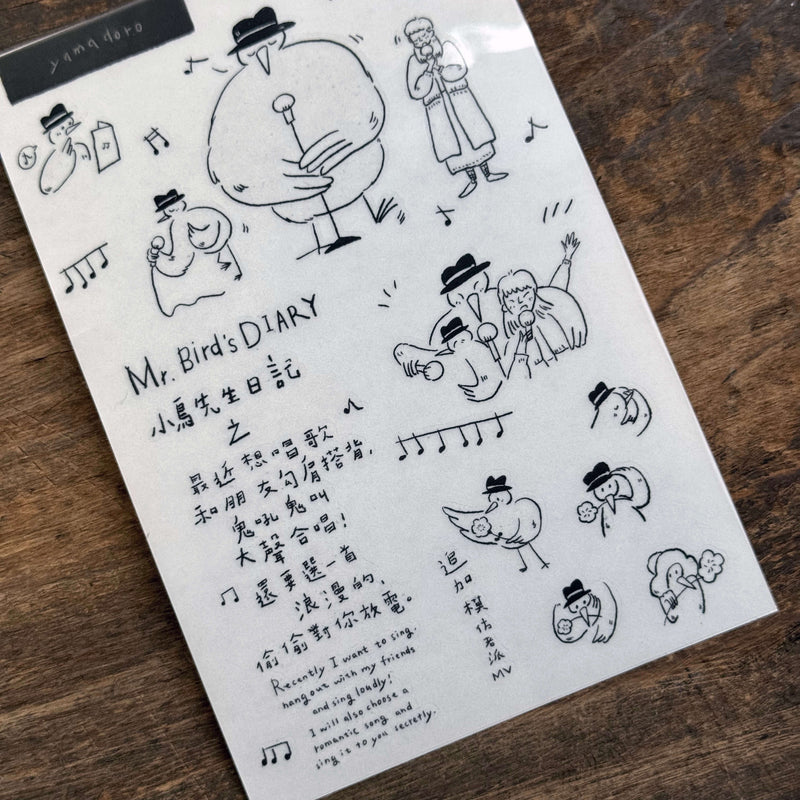 yamadoro
Mr. Bird's DIARY
小鳥先生日記
之
最近想唱歌
和朋友勾肩搭背,
鬼吼鬼叫
大聲合唱!
還要選一首
浪漫的,
偷偷對你放電。
Recently I want to sing.
hang out with my friends
and sing loudly!
I will also choose a
romantic song and
sing it to you secretly.
追加模仿老派MV